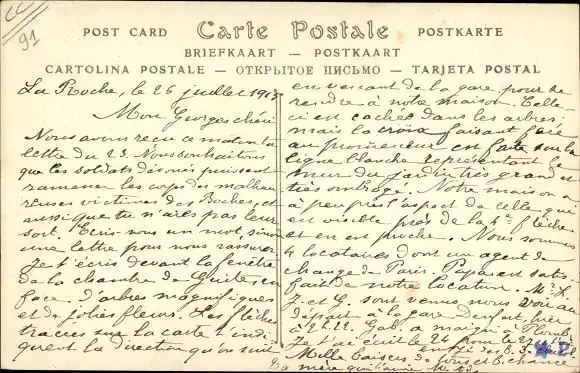 CC
91
POST CARD Carte Postale POSTKARTE
BRIEFKAART — POSTKAART
CARTOLINA POSTALE — ОТКРЫТОЕ ПИСЬМО — TARJETA POSTAL
La Roche, le 26 juillet 191
Mon Georges chéri
Nous avons reçu ce matin ta
lettre du 23. Nous souhaitons
que les soldats dévoués puissent
ramener les corps des malheu
reuses victimes des Boches, et
aussi que tu n'aies pas leur
sort. Ecris-nous un mot, sinon
une lettre pour nous rassurer
Je t'écris devant la fenêtre
de la chambre de Guite, en
face d'arbres magnifiques
et de jolies fleurs. Les flèches
tracées sur la carte t'indi
quent la direction qu'on suit
en venant de la gare pour se
rendre à notre maison. Celle-
ci est cachée dans les arbres,
mais la croix faisant face
au promeneur en faite sur la
ligne blanche représentant le
mur du jardin très grand et
très ombragé. Notre maison a
à peu près l'aspect de celle qui
est visible près de la 4e flèche
et en est proche. Nous sommes
4 locataires dont un agent de
change de Paris. Papa est satis
fait de notre location. Mr
J. et G. sont venus nous voir au
départ à la gare
à 2h 22. Gab. a maigri à
Je t'ai écrit le 24 pour le
Mille baisers de tous et B. chance
mère qui t'aime
P